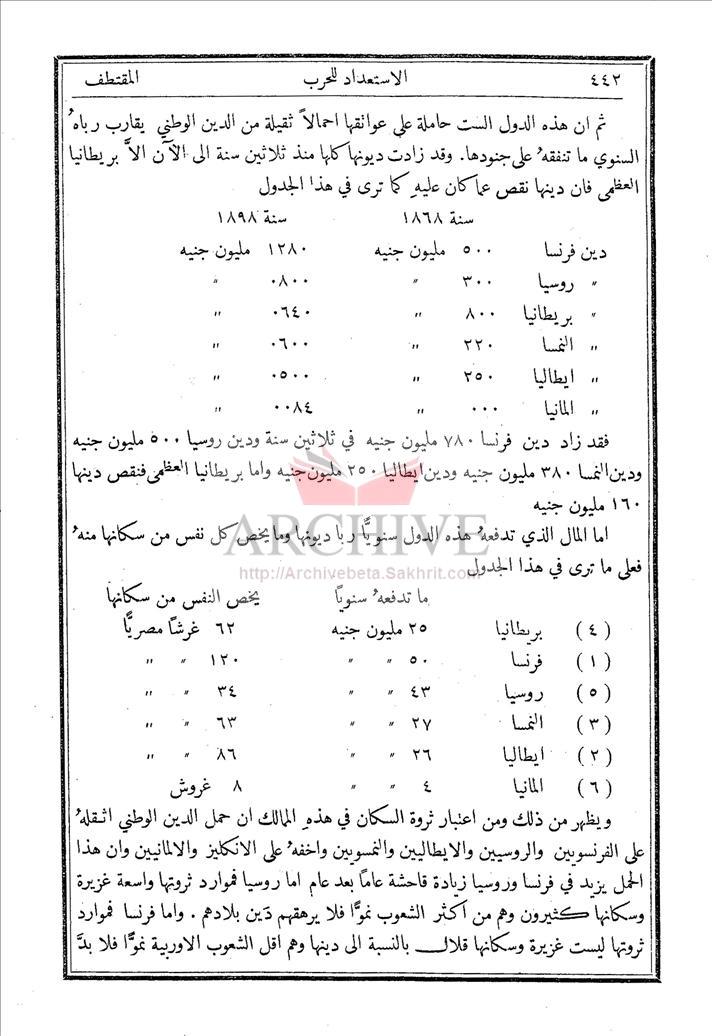 ٤٤٢ الاستعداد للحرب المقتطف
ثم ان هذه الدول الست حاملة على عوانقها احمالاً ثقيلة من الدين الوطني يقارب رباهُ
السنوي ما تنفقهُ على جنودها. وقد زادت ديونها كلها منذ ثلاثين سنة الى الآن الاَّ بريطانيا
العظمى فان دينها نقص عما كان عليهِ كما ترى في هذا الجدول
سنة ١٨٦٨ سنة ١٨٩٨
دين فرنسا ٥٠٠ مليون جنيه ١٢٨٠ مليون جنيه
" روسيا ٣٠٠ " ٠٨٠٠ "
" بريطانيا ٨٠٠ " ٠٦٤٠ "
" النمسا ٢٢٠ " ٠٦٠٠ "
" ايطاليا ٢٥٠ " ٠٥٠٠ "
" المانيا ٠٠٠ " ٠٠٨٤ "
فقد زاد دين فرنسا ٧٨٠ مليون جنيه في ثلاثين سنة ودين روسيا ٥٠٠ مليون جنيه
ودين النمسا ٣٨٠ مليون جنيه ودين ايطاليا ٢٥٠ مليون جنيه واما بريطانيا العظمى فنقص دينها
١٦٠ مليون جنيه
ARCHIVE
http://Archivebeta.Sakhrit.com
اما المال الذي تدفعهُ هذه الدول سنويًّا ربا ديونها وما يخص كل نفس من سكانها منهُ
فعلى ما ترى في هذا الجدول
ما تدفعهُ سنويًا يخص النفس من سكانها
(٤) بريطانيا ٢٥ مليون جنيه ٦٢ غرشًا مصريًّا
(١) فرنسا ٥٠ " " ١٢٠ " "
(٥) روسيا ٤٣ " " ٣٤ " "
(٣) النمسا ٢٧ " " ٦٣ " "
(٢) ايطاليا ٢٦ " " ٨٦ " "
(٦) المانيا ٤ " " ٨ غروش
ويظهر من ذلك ومن اعتبار ثروة السكان في هذهِ الممالك ان حمل الدين الوطني اثقلهُ
على الفرنسويين والروسيين والايطاليين والنمسويين واخفهُ على الانكليز والالمانيين وان هذا
الحمل يزيد في فرنسا وروسيا زيادة فاحشة عامًا بعد عام اما روسيا فموارد ثروتها واسعة غزيرة
وسكانها كثيرون وهم من اكثر الشعوب نموًّا فلا يرهقهم دَين بلادهم . واما فرنسا فموارد
ثروتها ليست غزيرة وسكانها قلال بالنسبة الى دينها وهم اقل الشعوب الاوربية نموًّا فلا بدَّ